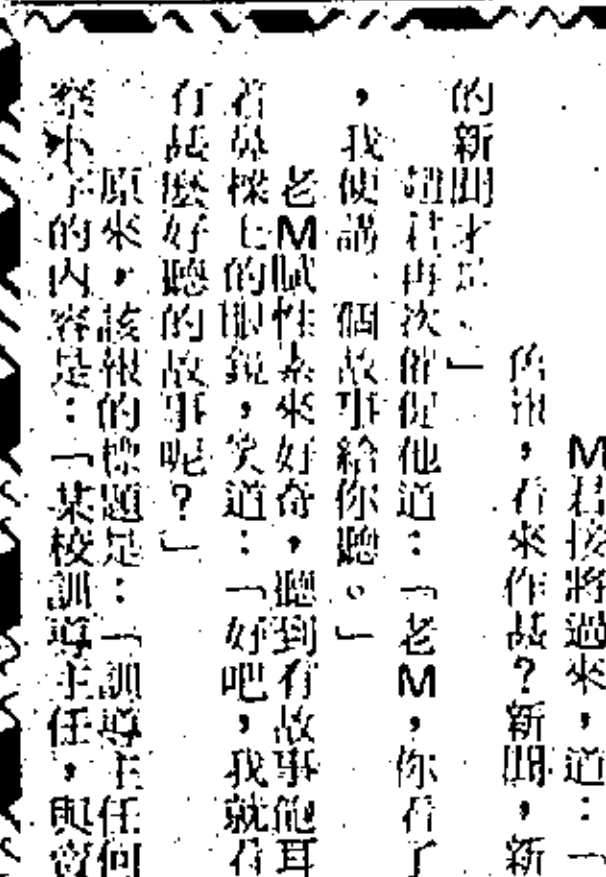 M君接將過來，道：「
舊報，看來作甚？新聞，新
的新聞才是。」
趙君再次催促他道：「老M，你看了
，我便講一個故事給你聽。」
老M賦性素來好奇，聽到有故事他耳
着鼻樑上的眼鏡，笑道：「好吧，我就看
有甚麼好聽的故事呢？」
原來，該報的標題是：「訓導主任何
察小字的內容是：「某校訓導主任，與